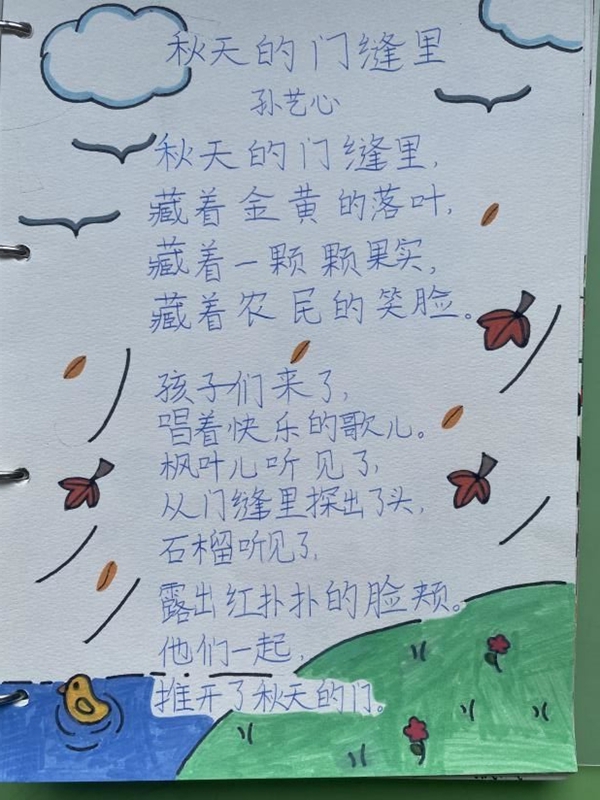 秋天的门缝里
孙艺心
秋天的门缝里，
藏着金黄的落叶，
藏着一颗颗果实，
藏着农民的笑脸。
孩子们来了，
唱着快乐的歌儿。
枫叶儿听见了，
从门缝里探出了头，
石榴听见了，
露出红扑扑的脸颊。
他们一起，
推开了秋天的门。